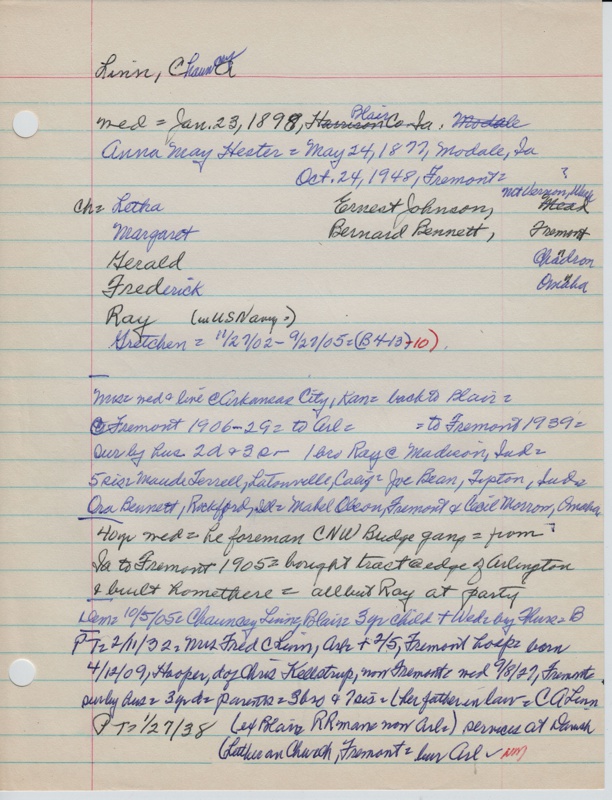 Linn, Chauncey
med = Jan. 23, 1898, Harrison Blair Co Ia, Modale
Anna May Hester = May 24, 1877, Modale, Ia
Oct. 24, 1948, Fremont =
Mt Vernon, Wash
ch = Letha Ernest Johnson, Mead
Margaret Bernard Bennett, Fremont
Gerald Chadron
Frederick Omaha
Ray (in US Navy =)
Gretchen = 11/27/02 - 9/27/05 = (B4-13+10)
Mrs = med & live @ Arkansas City, Kan = back to Blair =
@ Fremont 1906-29 = to Arl = = to Fremont 1939 =
sur by hus 2d & 3s - 1 bro Ray @ Madison, Ind =
5 sis = Maude Terrell, Latonville, Calif = Joe Bean, Tipton, Ind &
Ora Bennett, Rockford, Ill = Mabel Olson, Fremont & Cecil Morrow, Omaha
40 yr wed = he foreman CNW Bridge gang = from ?
Ia to Fremont 1905 = bought tract @ edge of Arlington
& built home there = all but Ray at party
Dem = 10/5/05 = Chauncey Linn, Blair = 3 yr child + Wed = by Thurs = B
PT = 2/11/32 = Mrs Fred C Linn, + 2/5, Fremont hosp = born
4/12/09, Hooper, d of Chris Kellstrup, now Fremont = med 9/8/27, Fremont
sur by hus = 3 yr d = parents = 3 bro & 7 sis = (her father in law = C A Linn
PT = 1/27/38 (ex Blair RR man = now Arl =) services at Danish
Lutheran Church, Fremont = bur Arl -